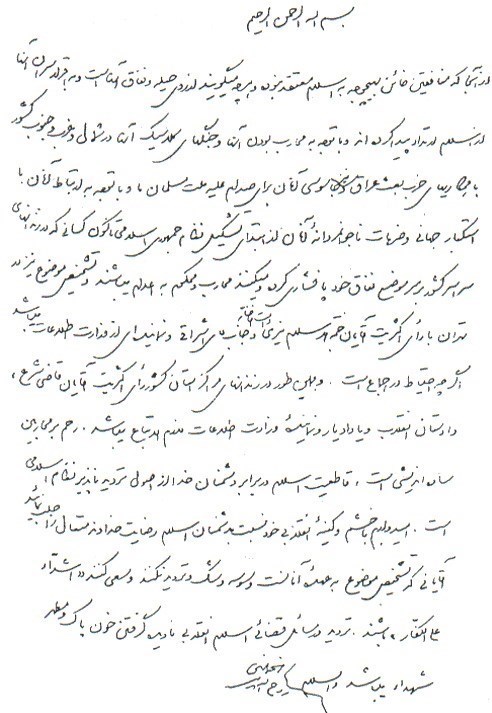 بسم الله الرحمن الرحیم
از آنجا که منافقین خائن بهیچوجه به اسلام معتقد نبوده و هر چه میگویند از روی حیله و نفاق آنهاست و به اقرار سران آنها
از اسلام ارتداد پیدا کرده اند و با توجه به محارب بودن آنها و جنگهای کلاسیک آنها در شمال و غرب و جنوب کشور
با همکاریهای حزب بعث عراق و نیز جاسوسی آنان برای صدام علیه ملت مسلمان ما و با توجه به ارتباط آنان با
استکبار جهانی و ضربات ناجوانمردانهٔ آنان از ابتدای تشکیل نظام جمهوری اسلامی تا کنون کسانی که در زندانهای
سراسر کشور بر سر موضع نفاق خود پافشاری کرده و میکنند محارب و محکوم به اعدام میباشند و تشخیص موضوع نیز در
تهران با رأی اکثریت آقایان حجة الاسلام نیری دامت افاضاته و جناب آقای اشراقی و نماینده‌ای از وزارت اطلاعات میباشد
اگر چه احتیاط در اجماع است . و همین طور در زندانهای مراکز استان کشور رأی اکثریت آقایان قاضی شرع ،
دادستان انقلاب و یا دادیار و نمایندهٔ وزارت اطلاعات لازم الاتباع میباشد . رحم بر محاربین
ساده اندیشی است ، قاطعیت اسلام در برابر دشمنان خدا از اصول تردید ناپذیر نظام اسلامی
است . امیدوارم با خشم و کینهٔ انقلابی خود نسبت به دشمنان اسلام رضایت خداوند متعال را جلب نمائید
آقایانی که تشخیص موضوع به عهدهٔ آنان است وسوسه و شک و تردید نکنند و سعی کنند « اشداء
علی الکفار » باشند . تردید در مسائل قضائی اسلام انقلابی نادیده گرفتن خون پاک و مطهر
شهداء میباشد والسلام
روح الله الموسوی الخمینی